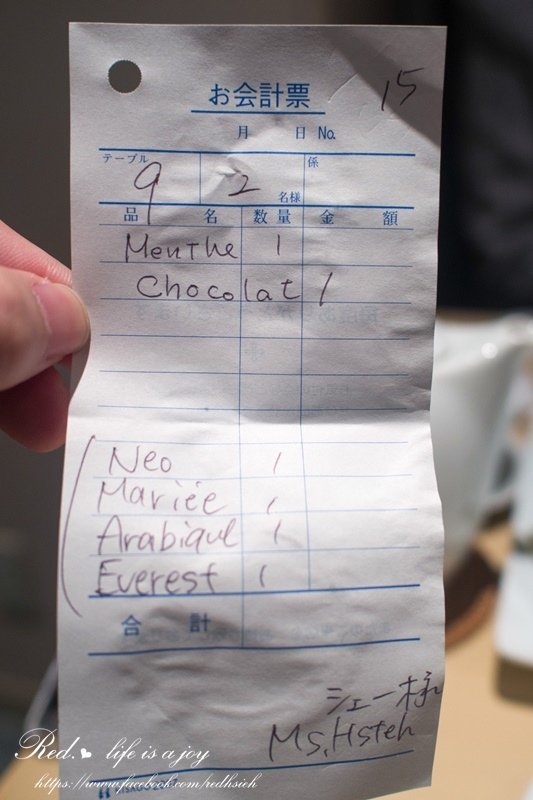 お会計票
15
月 日 No.
テーブル 9 2 名様 係
品 名 数量 金 額
Menthe 1
Chocolat 1
Neo 1
Mariée 1
Arabique 1
Everest 1
合 計
シェー様
Ms. Hsteh
Red. life is a joy
https://www.facebook.com/redhsieh